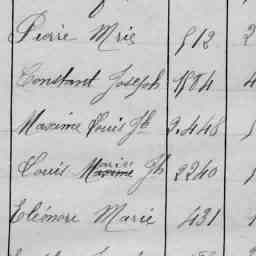 Pierre Mrie 512 2
Constant Joseph 1884 4
Maxime Louis Jh 2.448
Louis Marie Jh 2240 1
Eléonore Marie 431 1